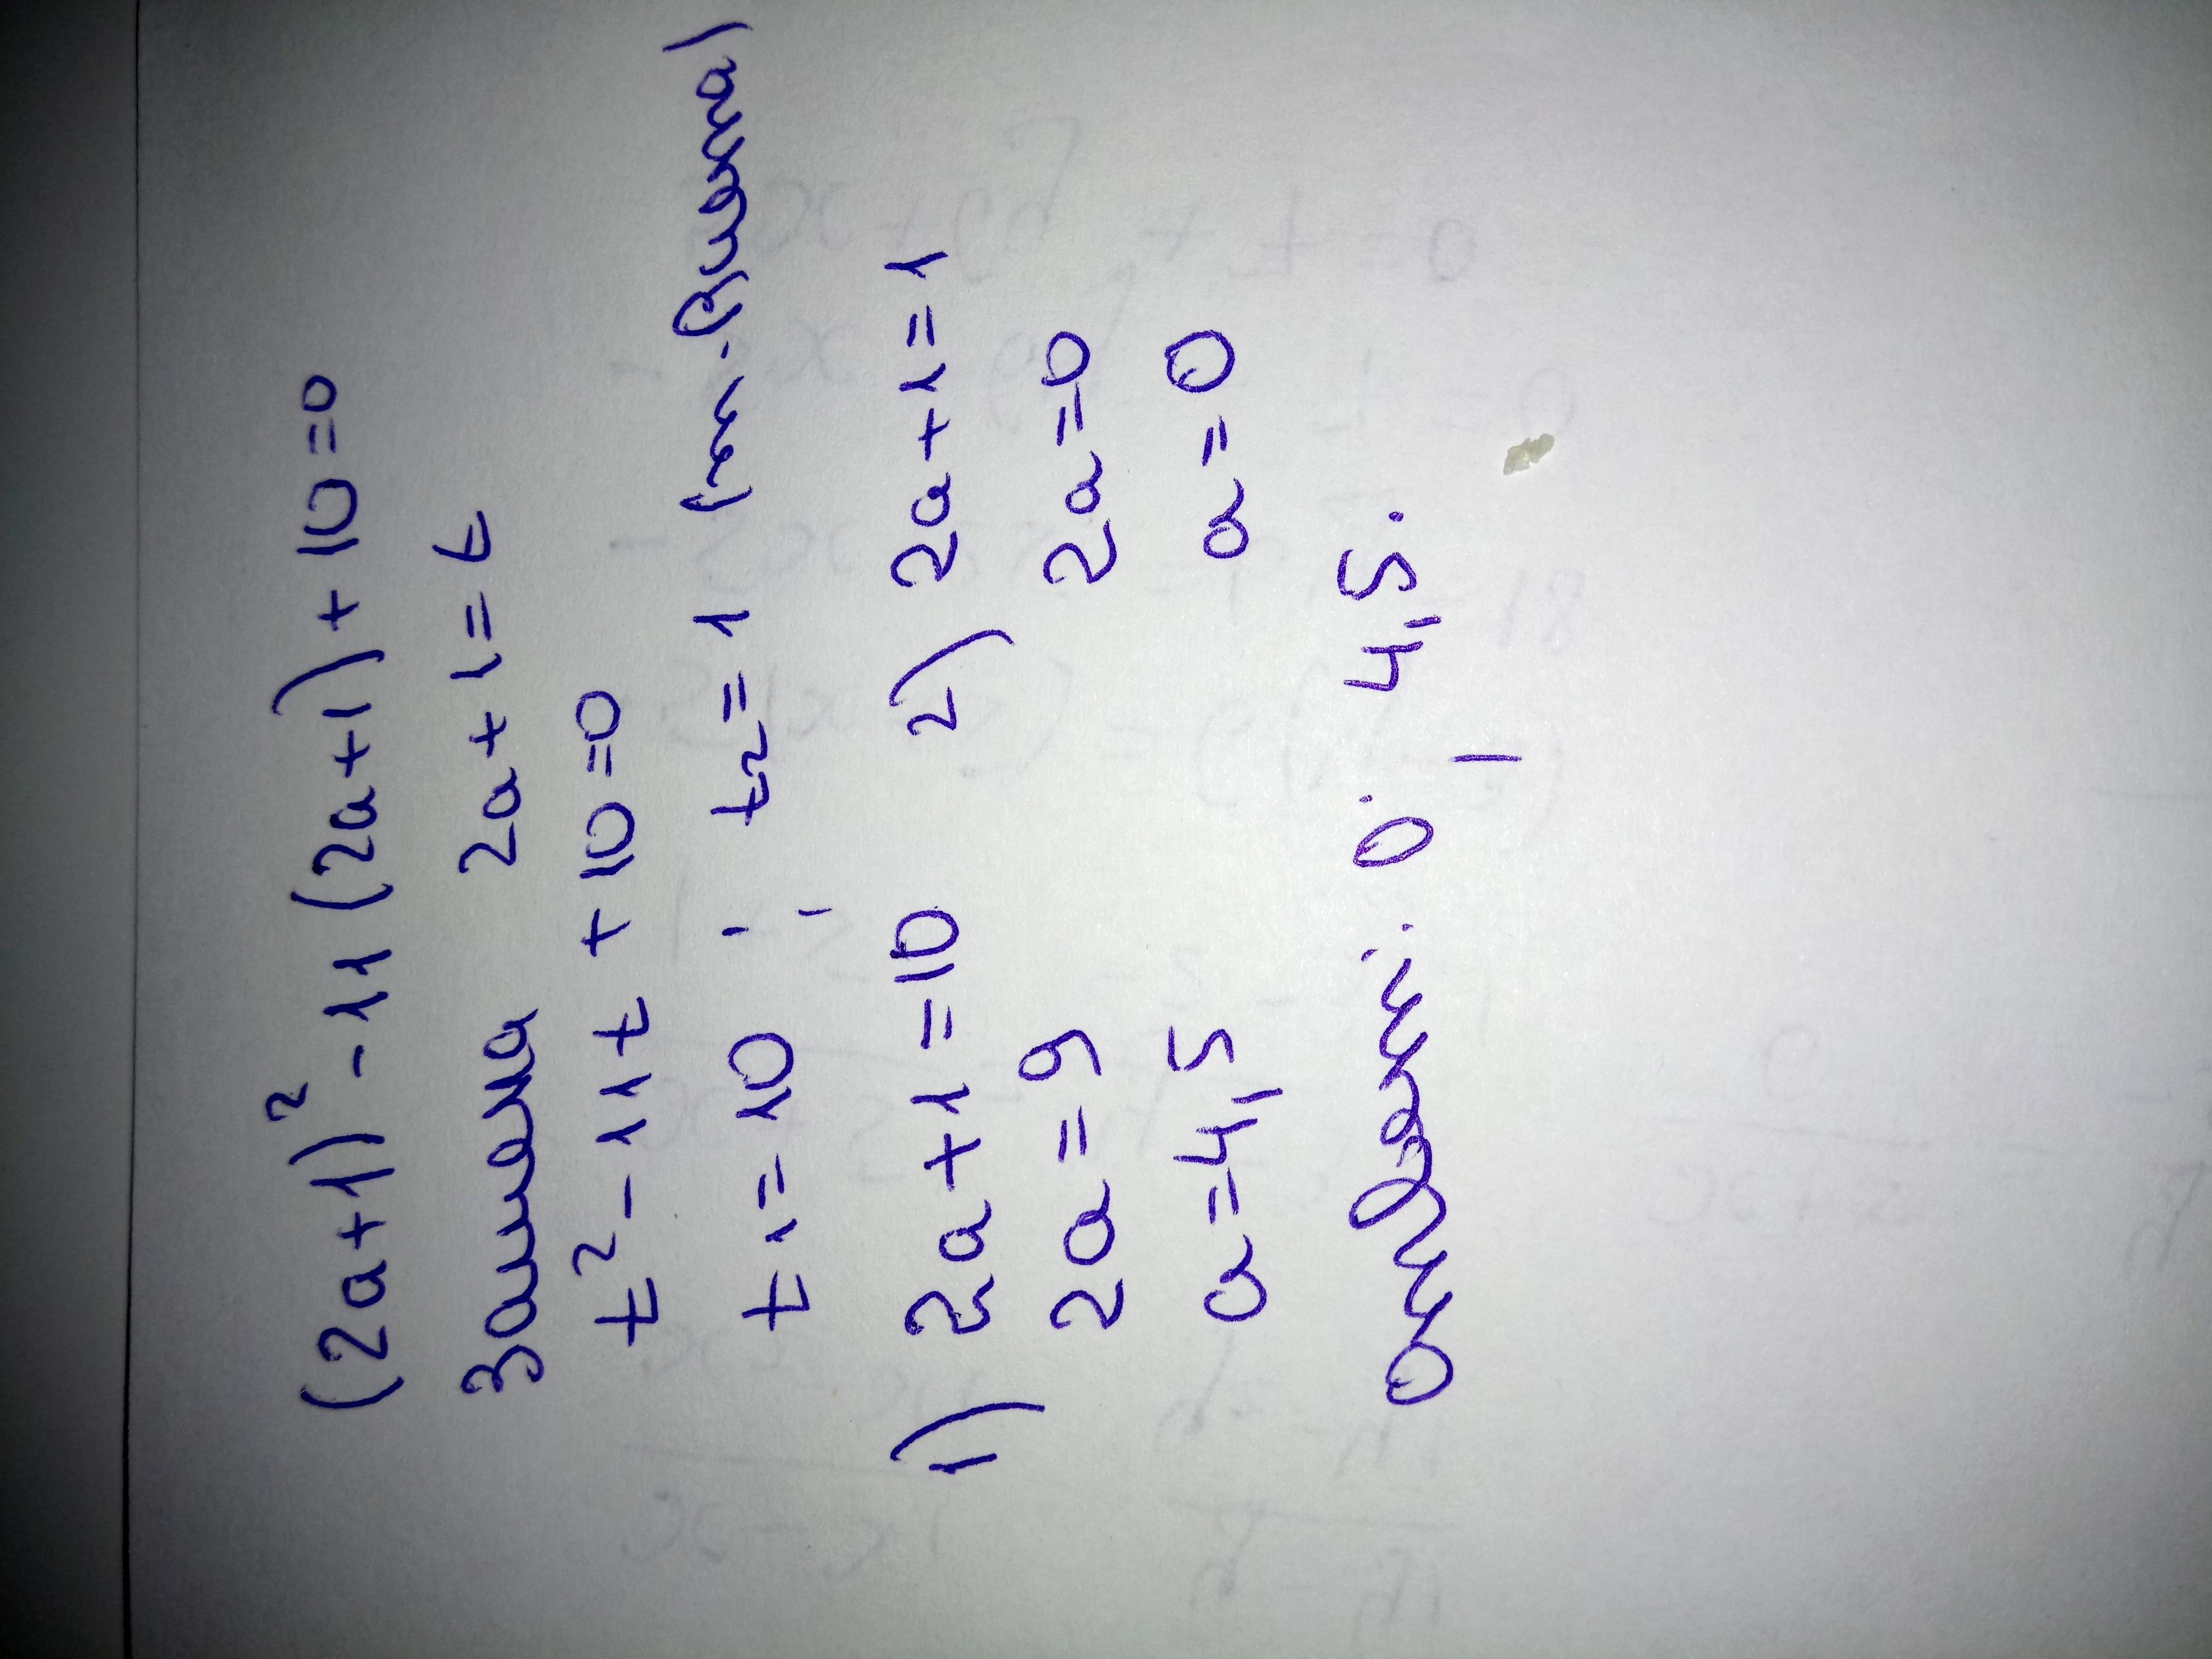 (2a+1)² - 11 (2a+1) + 10 = 0
Замена 2a + 1 = t
t² - 11t + 10 = 0
t₁ = 10 ; t₂ = 1 (т. Виета)
1) 2a + 1 = 10 2) 2a + 1 = 1
2a = 9 2a = 0
a = 4,5 a = 0
Ответ: 0; 4,5.